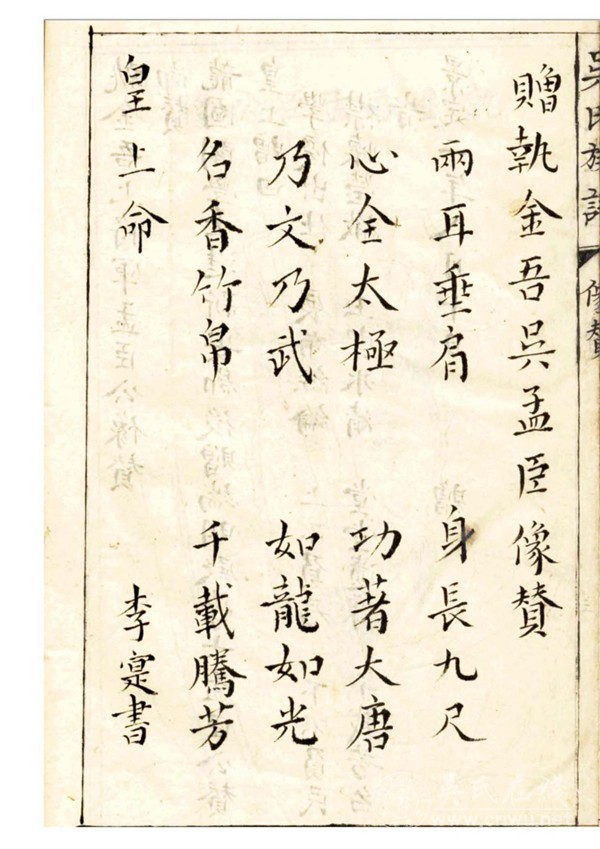 吳氏族譜 像贊
贈執金吾吳孟臣像贊
兩耳垂肩 身長九尺
心全太極 功著大唐
乃文乃武 如龍如光
名香竹帛 千載騰芳
皇上命 李寔書